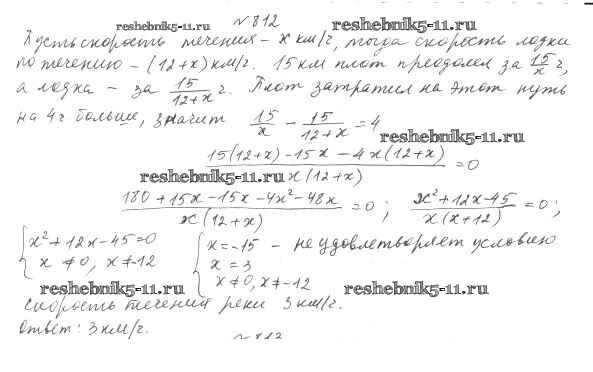 reshebnik5-11.ru №812 reshebnik5-11.ru
Пусть скорость течения – x км/ч, тогда скорость лодки
по течению – (12+x) км/ч. 15 км плот преодолел за 15/x ч,
а лодка – за 15/(12+x) ч. Плот затратил на этот путь
на 4ч больше, значит 15/x - 15/(12+x) = 4
reshebnik5-11.ru
(15(12+x) - 15x - 4x(12+x))/(x(12+x)) = 0
reshebnik5-11.ru
(180 + 15x - 15x - 4x² - 48x)/(x(12+x)) = 0; (x² + 12x - 45)/(x(x+12)) = 0;
{x² + 12x - 45 = 0 {x = -15 – не удовлетворяет условию
x ≠ 0, x ≠ -12 x = 3
x ≠ 0, x ≠ -12
reshebnik5-11.ru reshebnik5-11.ru
скорость течения реки 3 км/ч.
Ответ: 3 км/ч.
№813